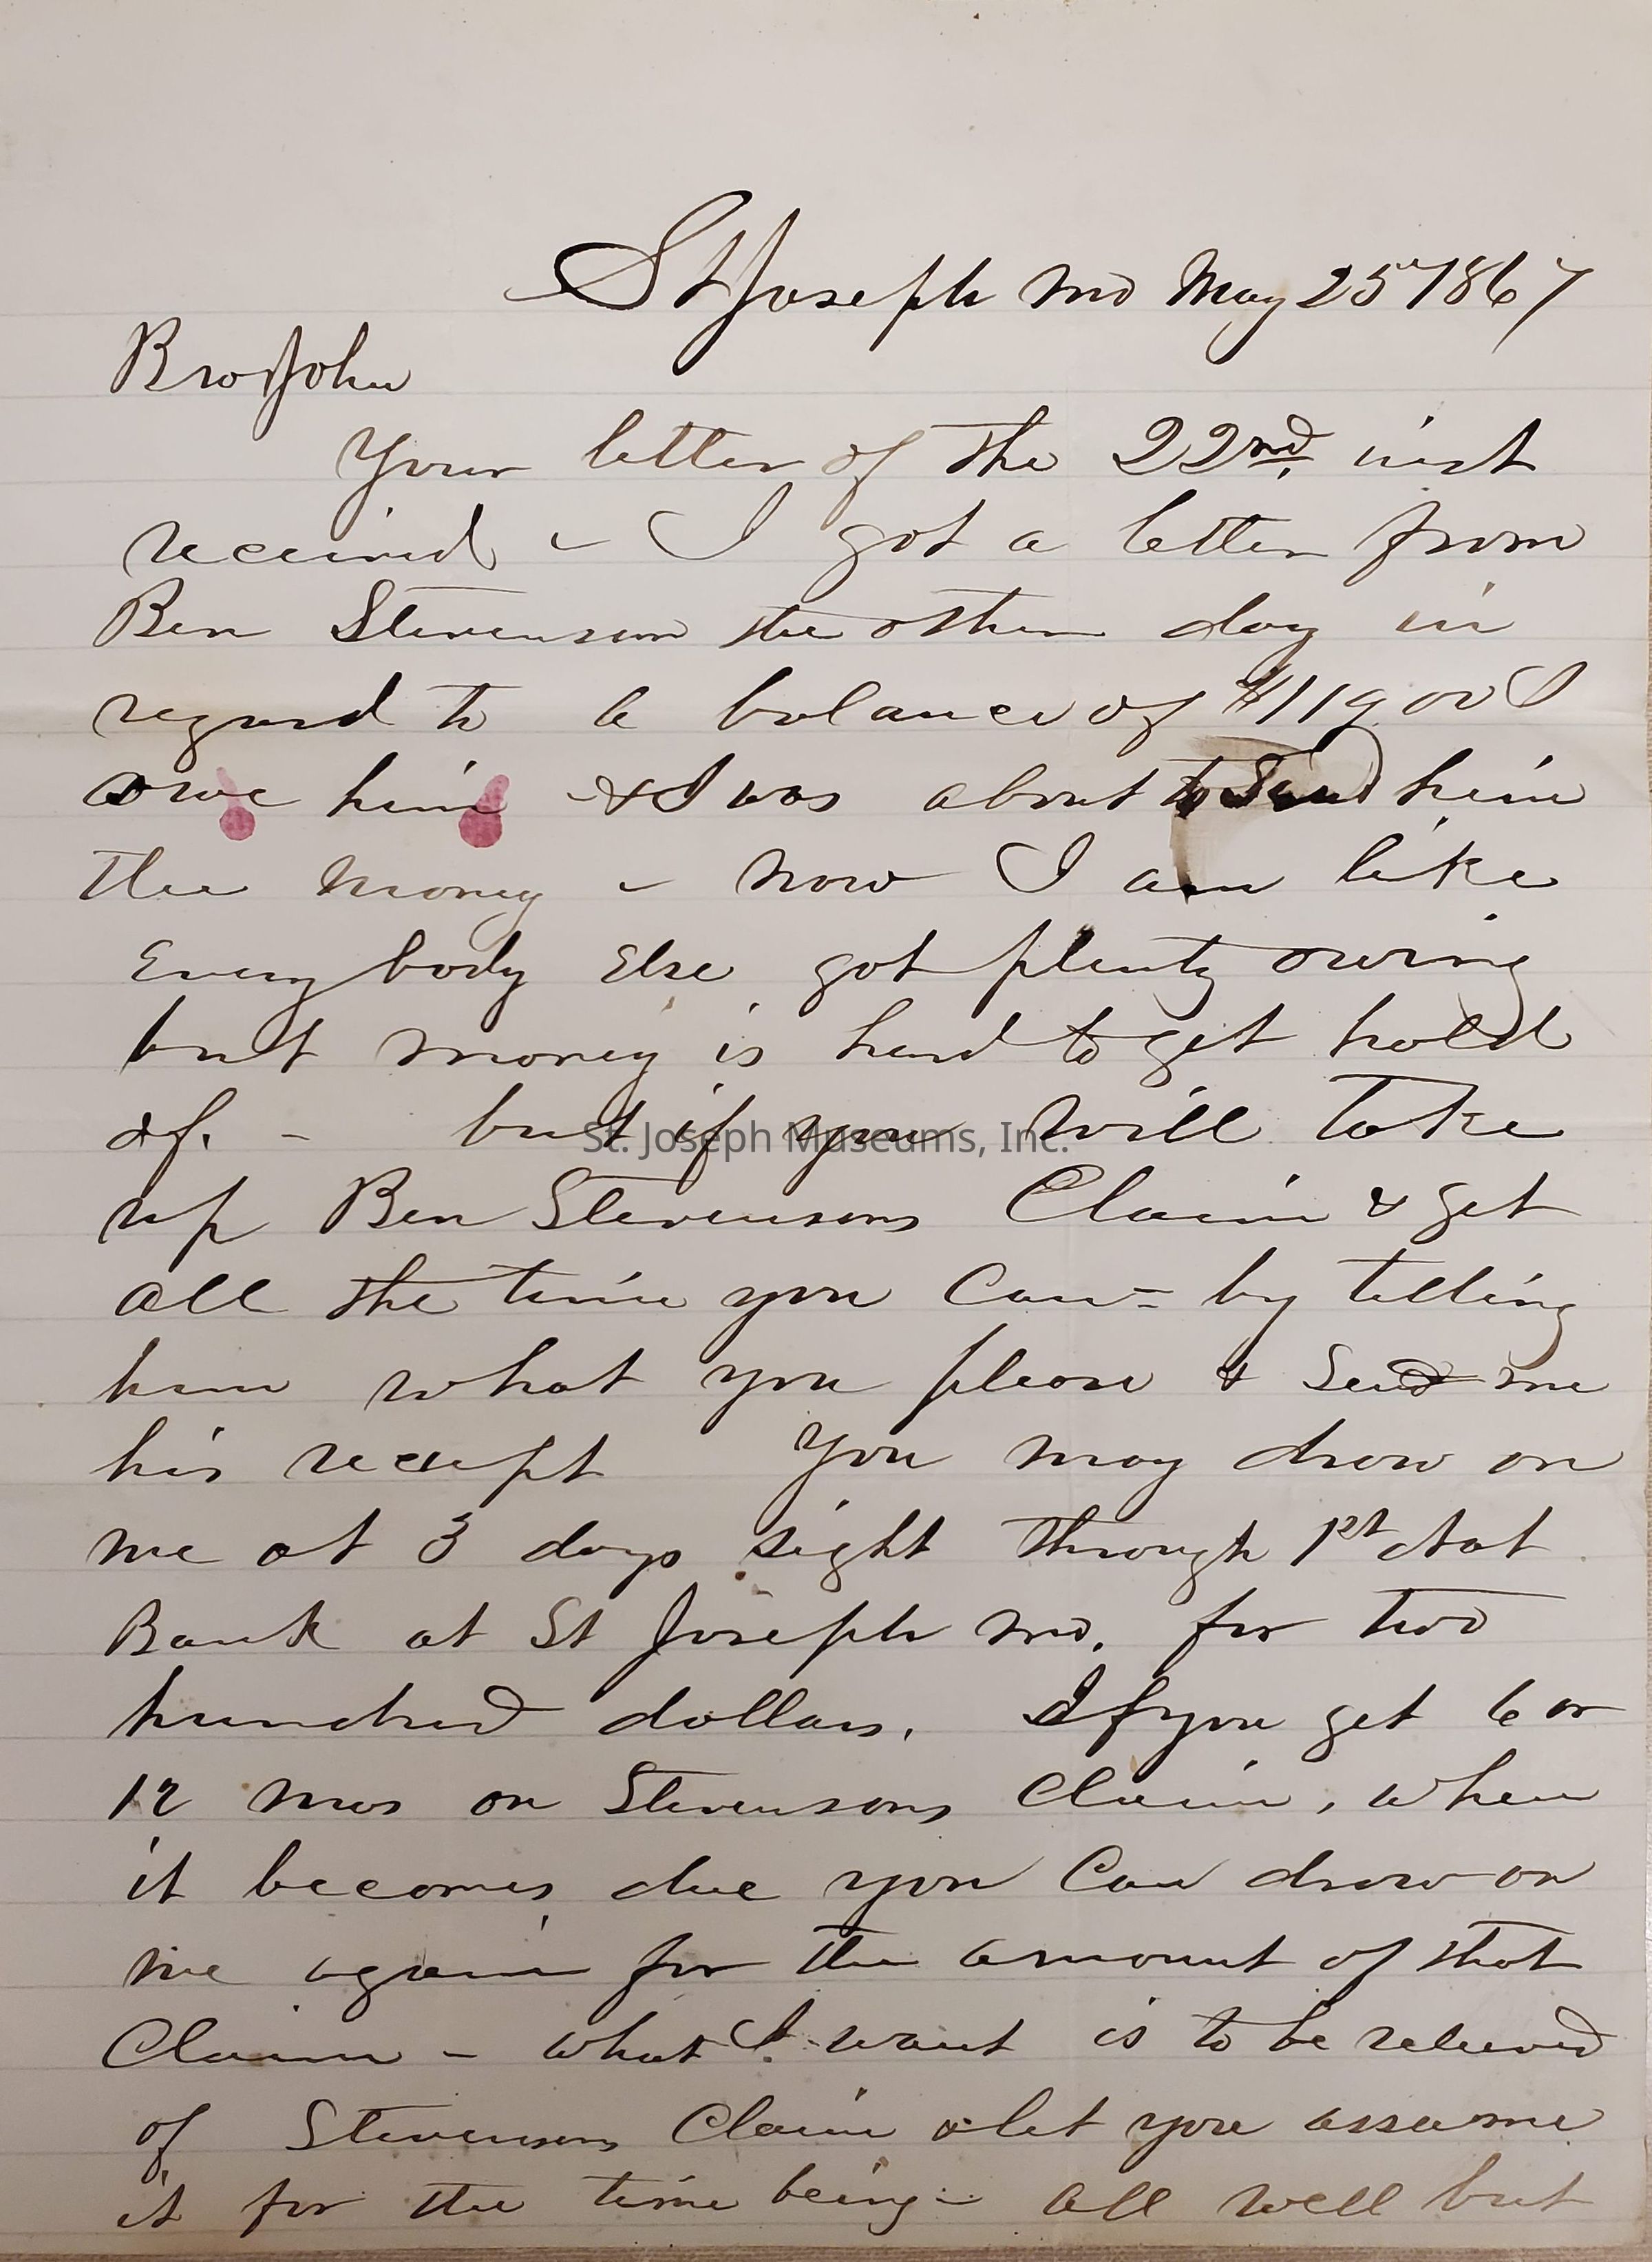 St Joseph Mo May 25" 1867
Bro John
Your letter of the 22nd. inst
received - I got a letter from
Ben Stevenson the other day in
regard to a balance of $119 00 I
owe him - & I was about to Send him
the money - now I am like
Every body Else got plenty owing
but money is hard to get hold
of. - but if you will take
up Ben Stevensons Claim & get
all the time you Can - by telling
him what you please & Send me
his receipt You may draw on
me at 3 days sight through 1st Nat
Bank at St Joseph Mo. for two
hundred dollars. If you get 6 or
12 mos on Stevensons Claim, when
it becomes due you Can draw on
me again for the amount of that
Claim - what I want is to be relieved
of Stevensons Claim & let you assume
it for the time being - all well but
St. Joseph Museums, Inc.